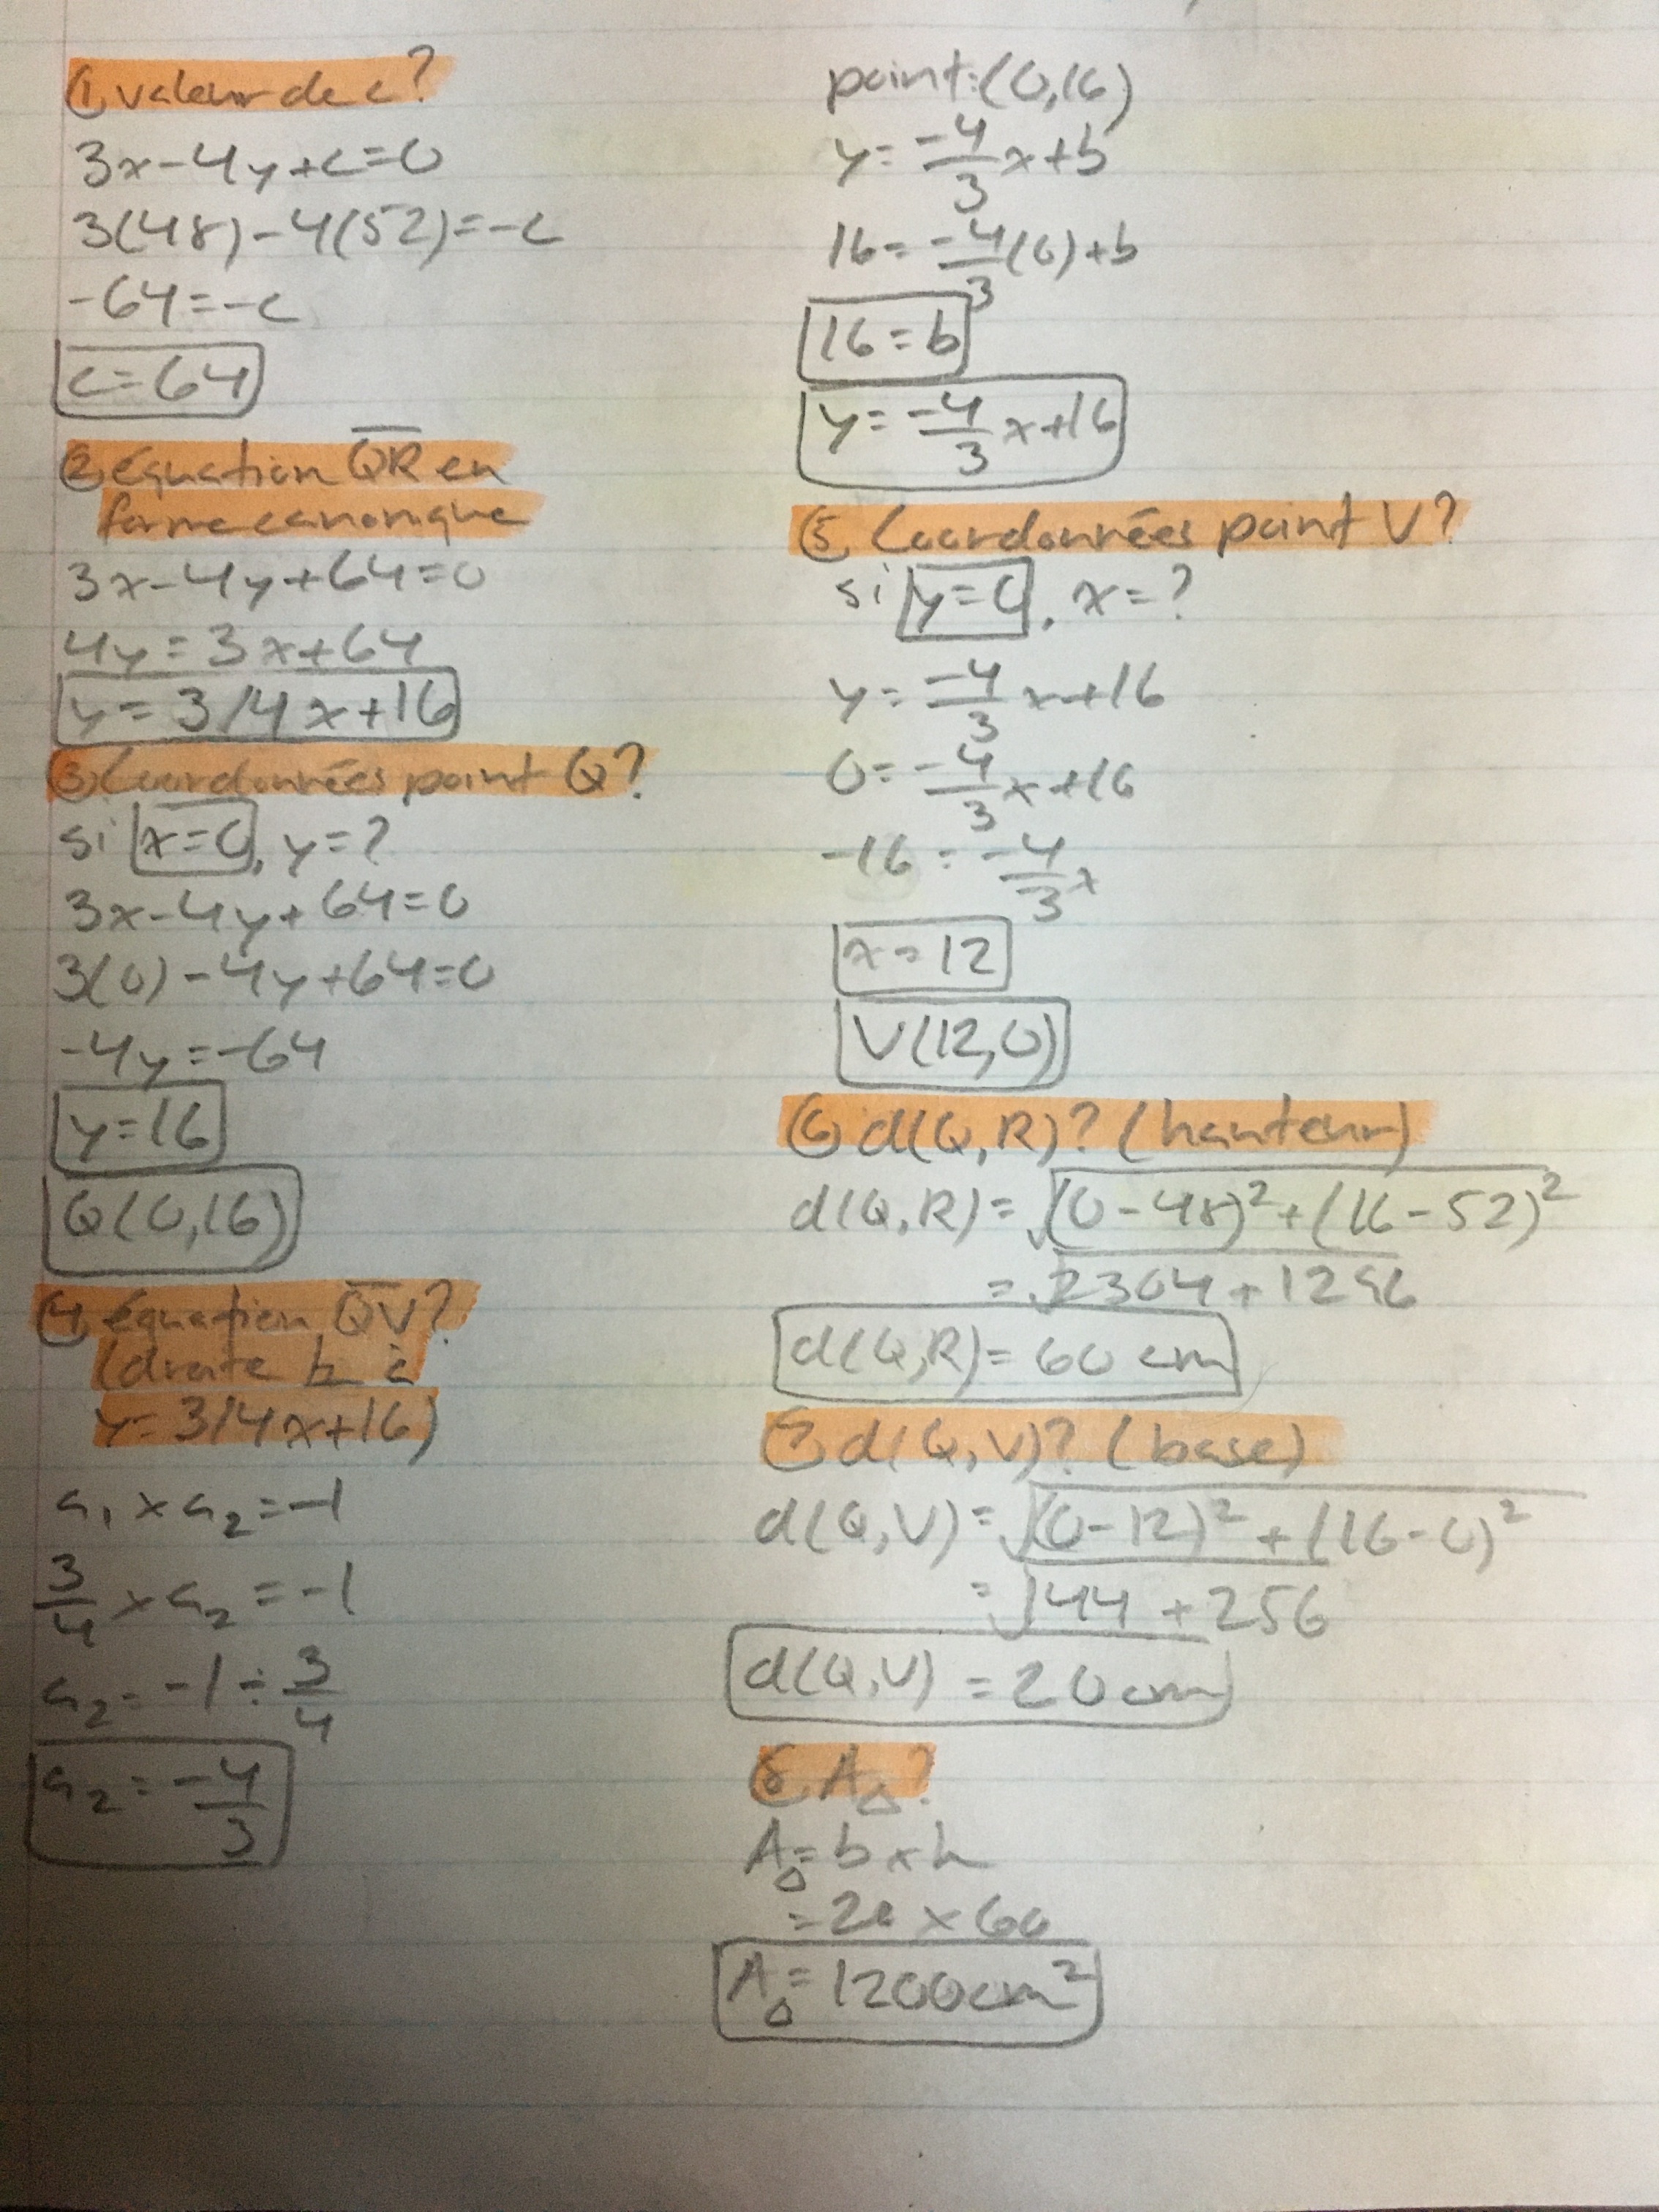 ① valeur de c?
3x-4y+c=0
3(48)-4(52)=-c
-64=-c
c=64
② équation QR en
forme canonique
3x-4y+64=0
4y=3x+64
y=3/4x+16
③ Coordonnées point Q?
si x=0, y=?
3x-4y+64=0
3(0)-4y+64=0
-4y=-64
y=16
Q(0,16)
④ équation QV?
(droite ⊥ à
y=3/4x+16)
a₁×a₂=-1
3/4×a₂=-1
a₂=-1÷3/4
a₂=-4/3
point:(0,16)
y=-4/3x+b
16=-4/3(0)+b
16=b
y=-4/3x+16
⑤ Coordonnées point V?
si y=0, x=?
y=-4/3x+16
0=-4/3x+16
-16=-4/3x
x=12
V(12,0)
⑥ d(Q,R)? (hauteur)
d(Q,R)=√(0-48)²+(16-52)²
=√2304+1296
d(Q,R)=60 cm
⑦ d(Q,V)? (base)
d(Q,V)=√(0-12)²+(16-0)²
=√144+256
d(Q,V)=20cm
⑧ A△?
A△=b×h
=20×60
A△=1200cm²